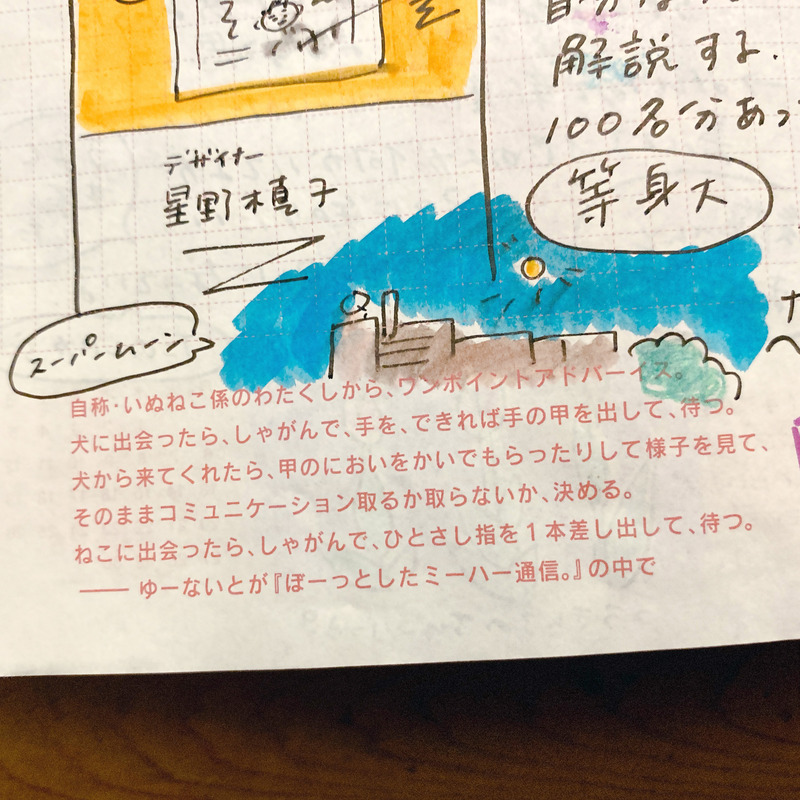 解説する.
100名分あっ
等身大
デザイナー
星野槙子
スーパームーン
自称・いぬねこ係のわたくしから、ワンポイントアドバーイス。
犬に出会ったら、しゃがんで、手を、できれば手の甲を出して、待つ。
犬から来てくれたら、甲のにおいをかいでもらったりして様子を見て、
そのままコミュニケーション取るか取らないか、決める。
ねこに出会ったら、しゃがんで、ひとさし指を1本差し出して、待つ。
—— ゆーないとが『ぼーっとしたミーハー通信。』の中で